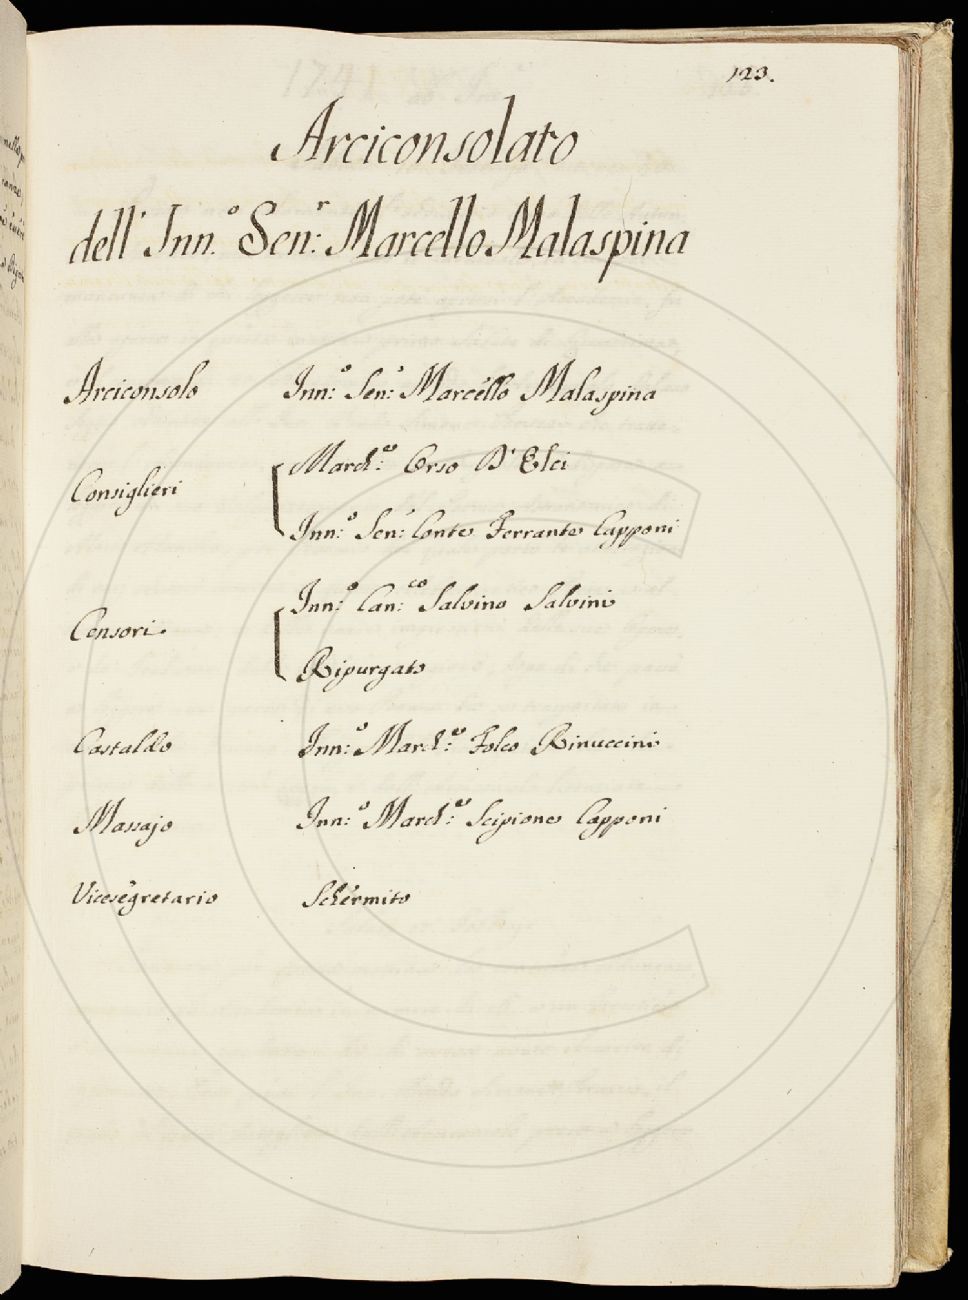 123.
Arciconsolato
dell' Inn.º Sen.r Marcello Malaspina
Arciconsolo Inn:º Sen:r Marcello Malaspina
Consiglieri
March:e Orso D'Elci
Inn:º Sen:r Conte Ferrante Capponi
Censori.
Inn:º Can:co Salvino Salvini
Ripurgato
Castaldo Inn:º March:e Folco Rinuccini
Massajo Inn:º March:e Scipione Capponi
Vicesegretario Schermito